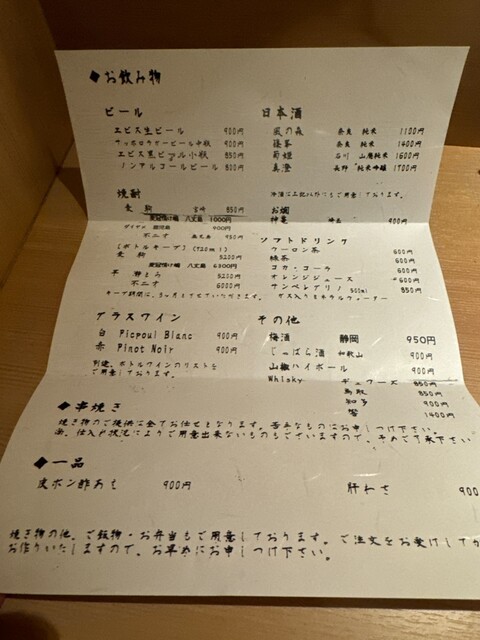 ◆お飲み物
ビール
エビス生ビール 900円
サッポロラガービール中瓶 900円
エビス黒ビール小瓶 850円
ノンアルコールビール 800円
日本酒
風の森 奈良 純米 1100円
篠峯 奈良 純米 1400円
菊姫 石川 山廃純米 1600円
真澄 長野 純米吟醸 1700円
冷酒は上記以外にもご用意しております。
焼酎
麦 駒 宮崎 850円
黄韶情け嶋 八丈島 1000円
900円
不二才 950円
お燗
神亀 埼玉 900円
[ボトルキープ] (720ml)
麦 駒 5200
情け嶋 八丈島 6300円
芋 5200
不二才 6000
キープ期間は、3ヶ月とさせていただきます。
ソフトドリンク
ウーロン茶 600円
緑茶 600円
コカ・コーラ 600円
オレンジジュース 600円
サンペレグリノ 500ml 850円
ガス入りミネラルウォーター
グラスワイン
白 Picpoul Blanc 900円
赤 Pinot Noir 900円
別途、ボトルワインのリストを
ご用意しております。
その他
梅酒 静岡 950円
じゃばら酒 和歌山 900円
山椒ハイボール 900円
Whisky デュワーズ 850円
鳥取 850円
知多 900円
響 1400円
◆串焼き
焼き物のご提供は全てお任せとなります。苦手なものはお申しつけ下さい。
尚、仕入や状況によりご用意出来ないものもございますので、予めご了承下さい
◆一品
皮ポン酢あえ 900円
肝わさ 900
焼き物の他、ご飯物・お弁当もご用意しております。ご注文をお受けしてか
お作りいたしますので、お早めにお申しつけ下さい。